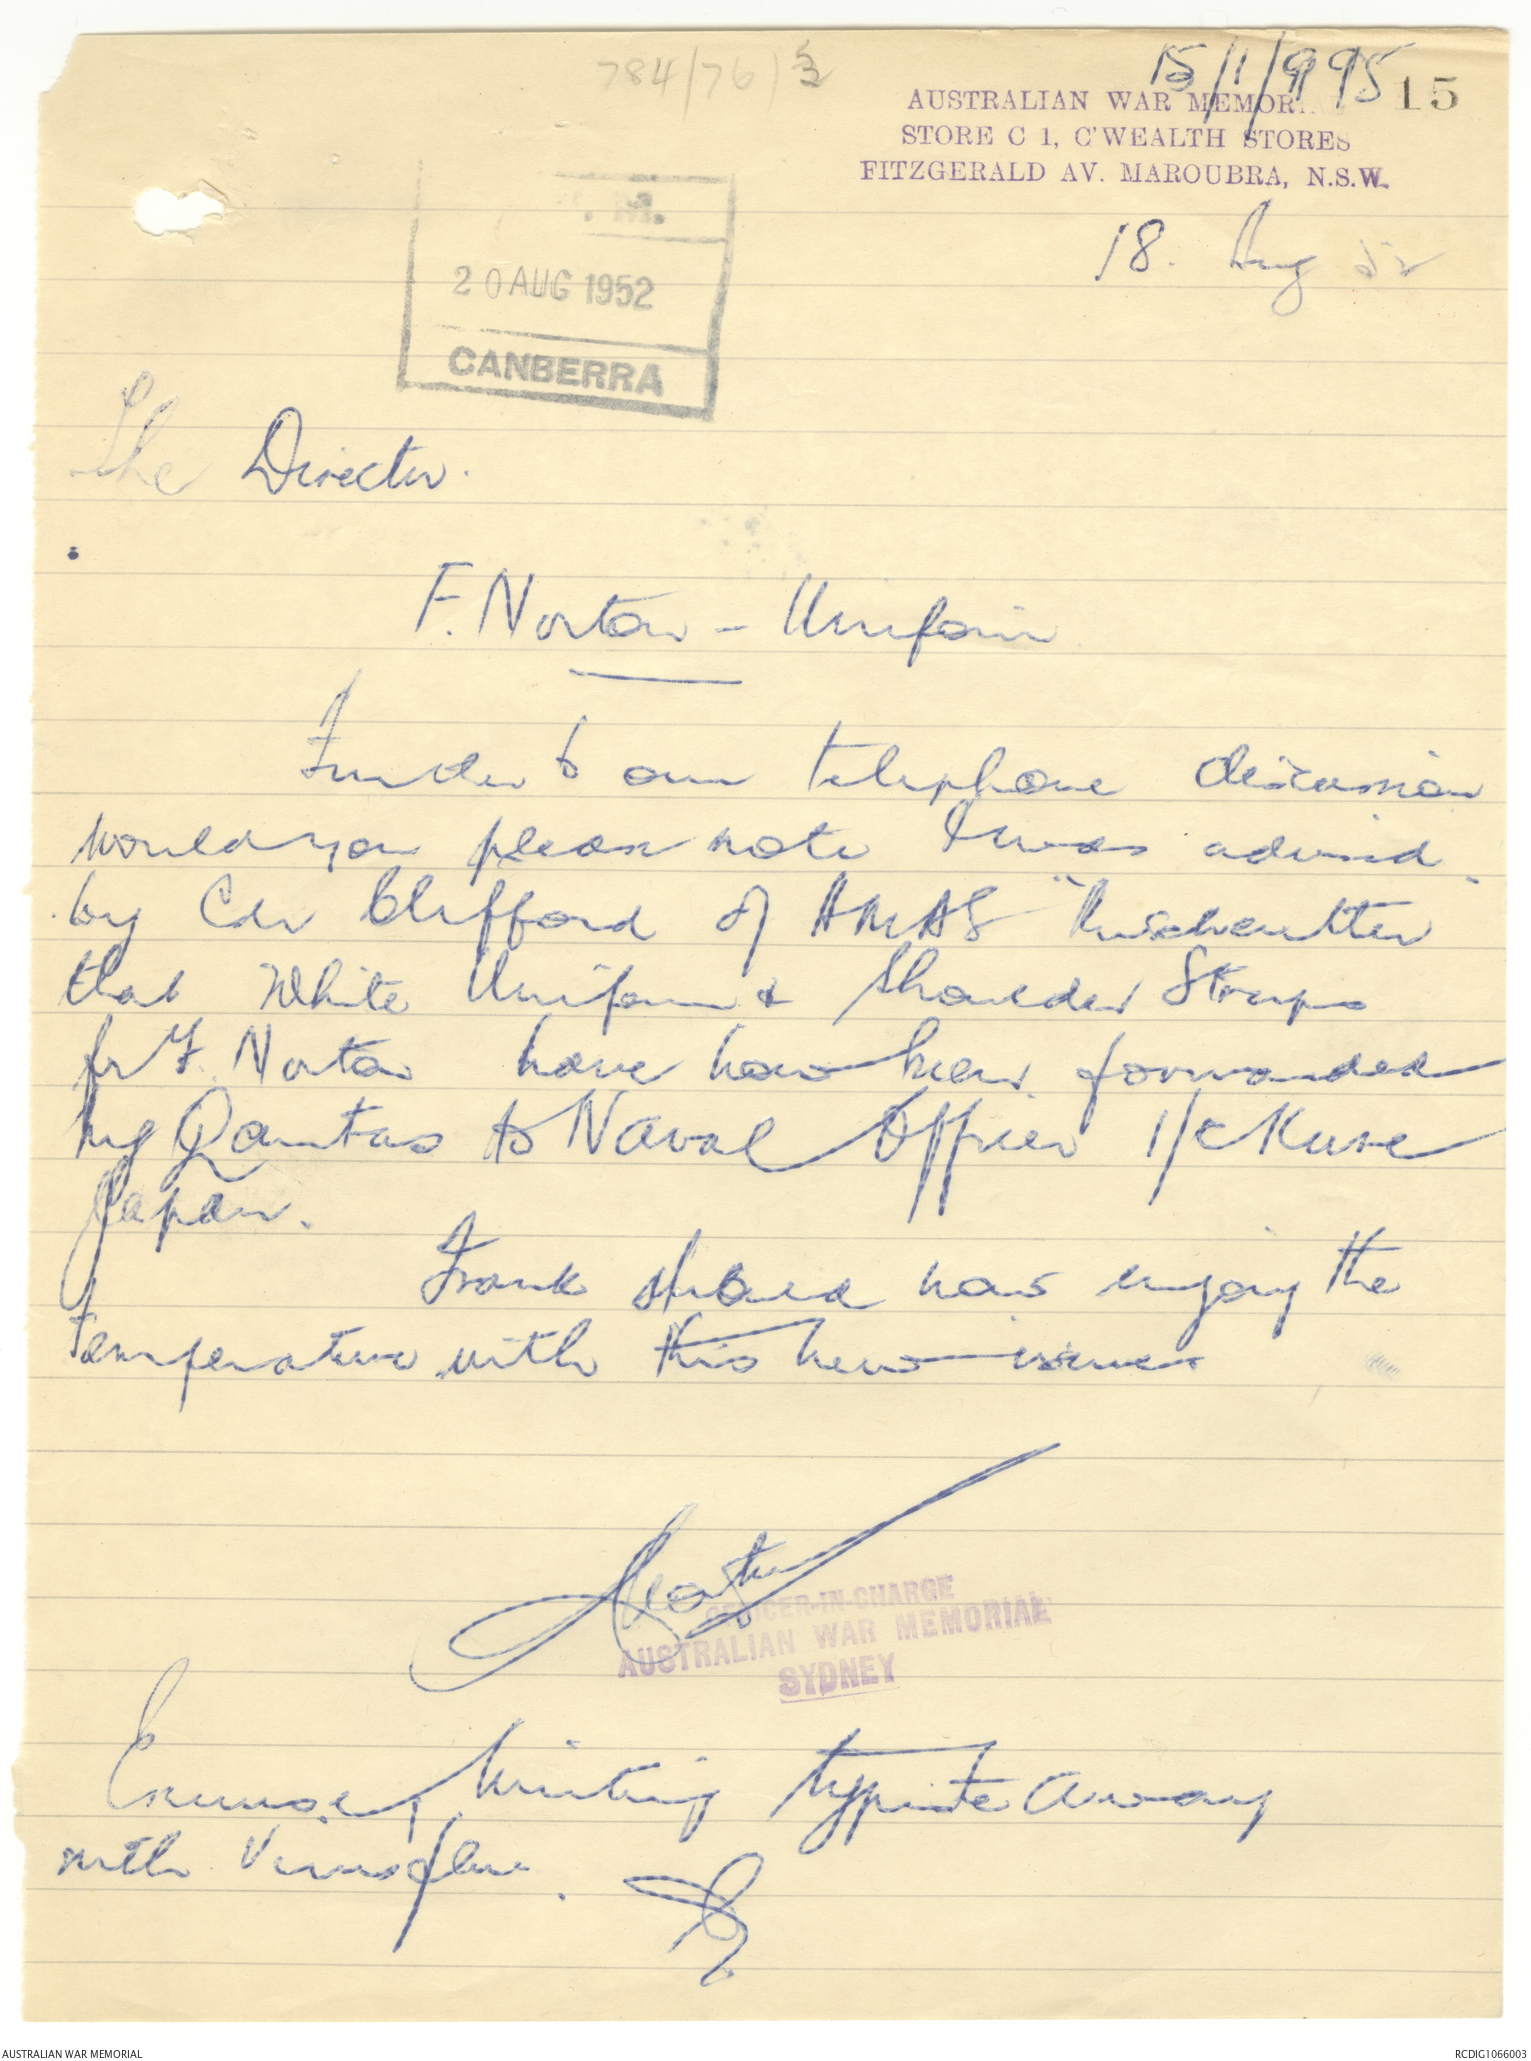 784/76/
15/1/995
15
AUSTRALIAN WAR MEMORIAL
STORE C 1, C'WEALTH STORES
FITZGERALD AV. MAROUBRA, N.S.W.
18. Aug 52
20 AUG 1952
CANBERRA
The Director.
F. Norton - Uniform
Further to our telephone discussion
would you please note I was advised
by Cdr Clifford of HMAS "Rushcutter"
that White Uniform & Shoulder Straps
for F. Norton have now been forwarded
by Qantas to Naval Officer I/C Kure
Japan.
Frank should now enjoy the
temperature with this new issue
OFFICER-IN-CHARGE
AUSTRALIAN WAR MEMORIAL
SYDNEY
Excuse writing typiste away
with Virus flu.
AUSTRALIAN WAR MEMORIAL
RCDIG1066003